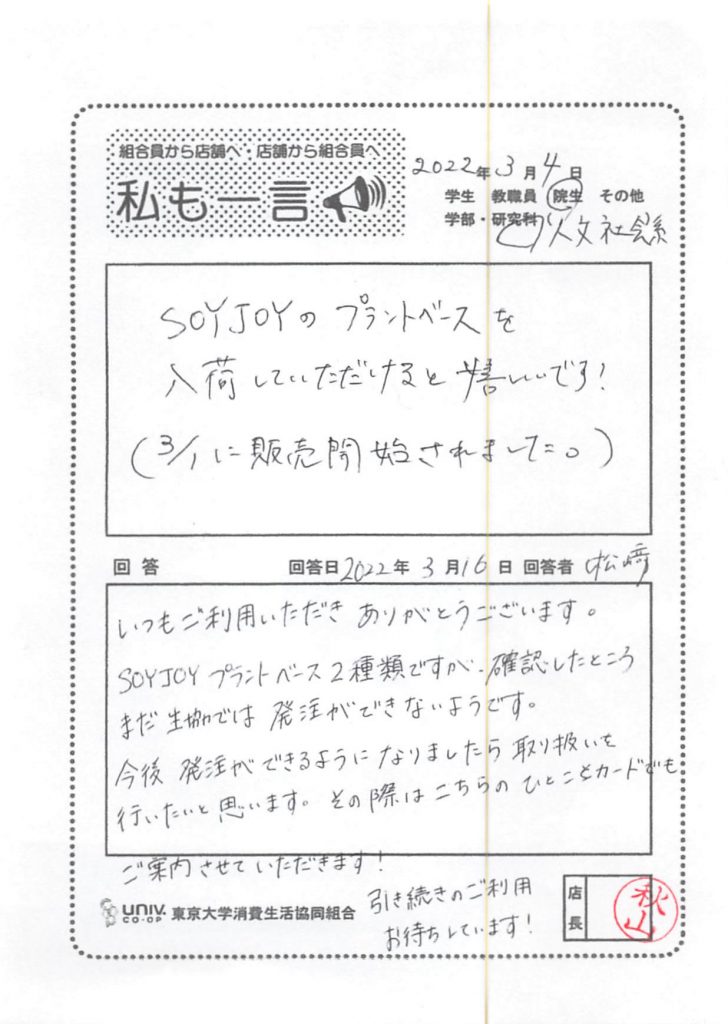 組合員から店舗へ・店舗から組合員へ
私も一言
2022年3月4日
学生 教職員 院生 その他
学部・研究科 人文社会系
SOYJOYのプラントベースを
入荷していただけると嬉しいです!
(3/1に販売開始されました。)
回答 回答日2022年3月16日 回答者 松﨑
いつもご利用いただきありがとうございます。
SOYJOYプラントベース2種類ですが、確認したところ
まだ生協では発注ができないようです。
今後発注ができるようになりましたら取り扱いを
行いたいと思います。その際はこちらのひとことカードでも
ご案内させていただきます!
引き続きのご利用
お待ちしています!
UNIV. CO-OP 東京大学消費生活協同組合
店長 秋山